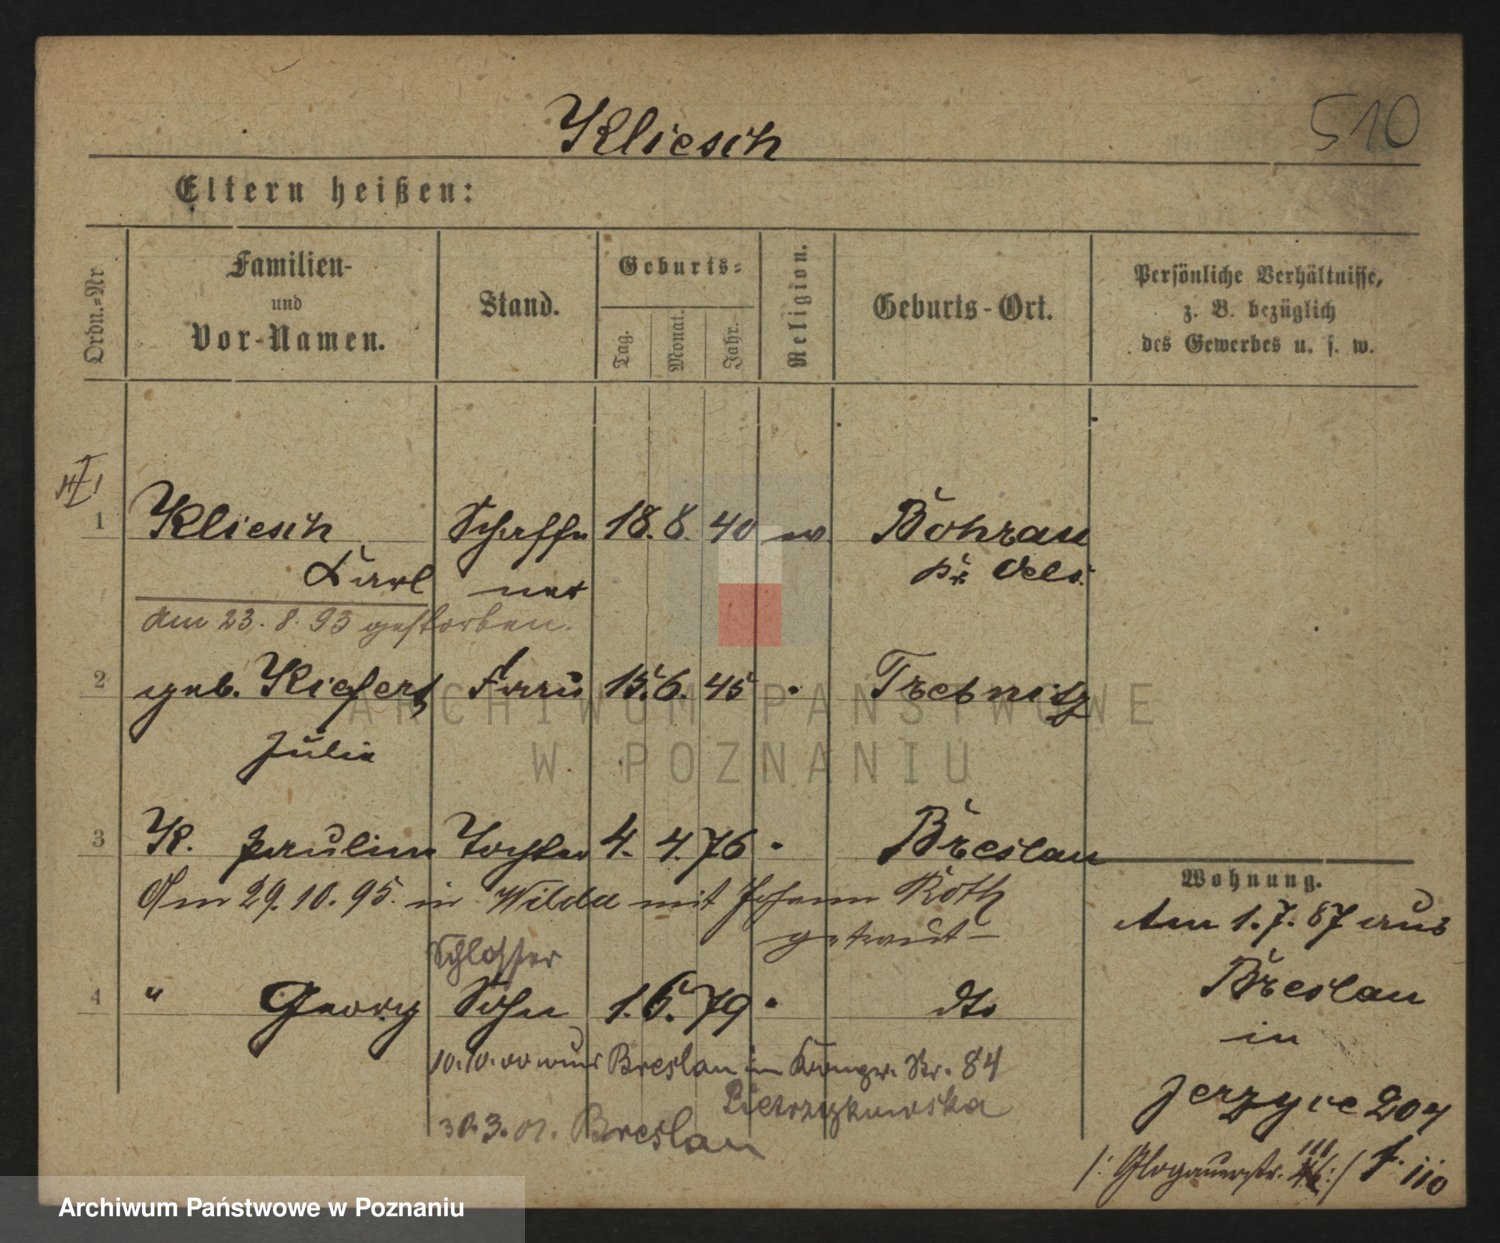 510
Kliesch
Eltern heißen:
Ordn.=Nr
Familien-
und
Vor-Namen.
Stand.
Geburts-
Tag.
Monat.
Jahr.
Religion.
Geburts-Ort.
Persönliche Verhältnisse,
z. B. bezüglich
des Gewerbes u. s. w.
1 Kliesch Schaff 18. 8. 40 ev Bohrau
Karl ner Kr. Oels.
Am 23. 8. 93 gestorben.
2 geb. Kiefert Frau 15. 6. 45 " Trebnitz
Julie
3 K. Pauline Tochter 4. 4. 76 " Breslau
Am 29. 10. 95. in Wilda mit Johann Roth
getraut
Schlosser
4 " Georg Sohn 1. 6. 79 " dto
10. 10. 00 aus Breslau in Str. 84
Pietrzykowska
30. 3. 01. Breslau
Wohnung.
Am 1. 7. 87 aus
Breslau
in
Jerzyce 204
/: Glogauerstr. :/ 110
ARCHIWUM PAŃSTWOWE
W POZNANIU
Archiwum Państwowe w Poznaniu